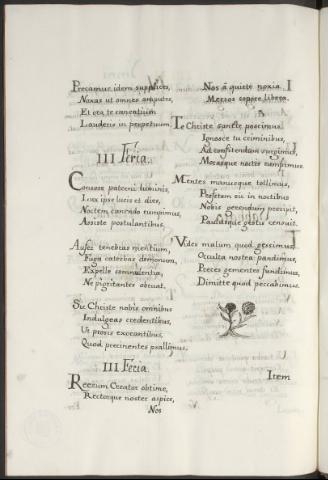 Precamur idem supplices,
Noxas ut omnes amputet,
Et ora te canentium
Laudent in perpetuum.
III Feria.
Consors paterni luminis,
Lux ipse lucis et dies,
Noctem canendo rumpimus,
Assiste postulantibus.
Aufer tenebras mentium,
Fuga catervas dæmonum,
Expelle somnolentiam,
Ne pigritantes obruat.
Sic Christe nobis omnibus
Indulgeas credentibus,
Ut prosit exorantibus,
Quod precinentes psallimus.
III Feria.
Rerum Creator optime,
Rectorque noster aspice,
Nos
Nos à quiete noxia
Mersos sopore libera.
Te Christe sancte poscimus
Ignosce tu criminibus,
Ad confitendum surgimus,
Morasque noctis rumpimus.
Mentes manusque tollimus,
Propheta sicut noctibus
Nobis gerendum precipit,
Paulusque gestis censuit.
Vides malum quod gessimus,
Occulta nostra pandimus,
Preces gementes fundimus,
Dimitte quod peccabimus.
Item